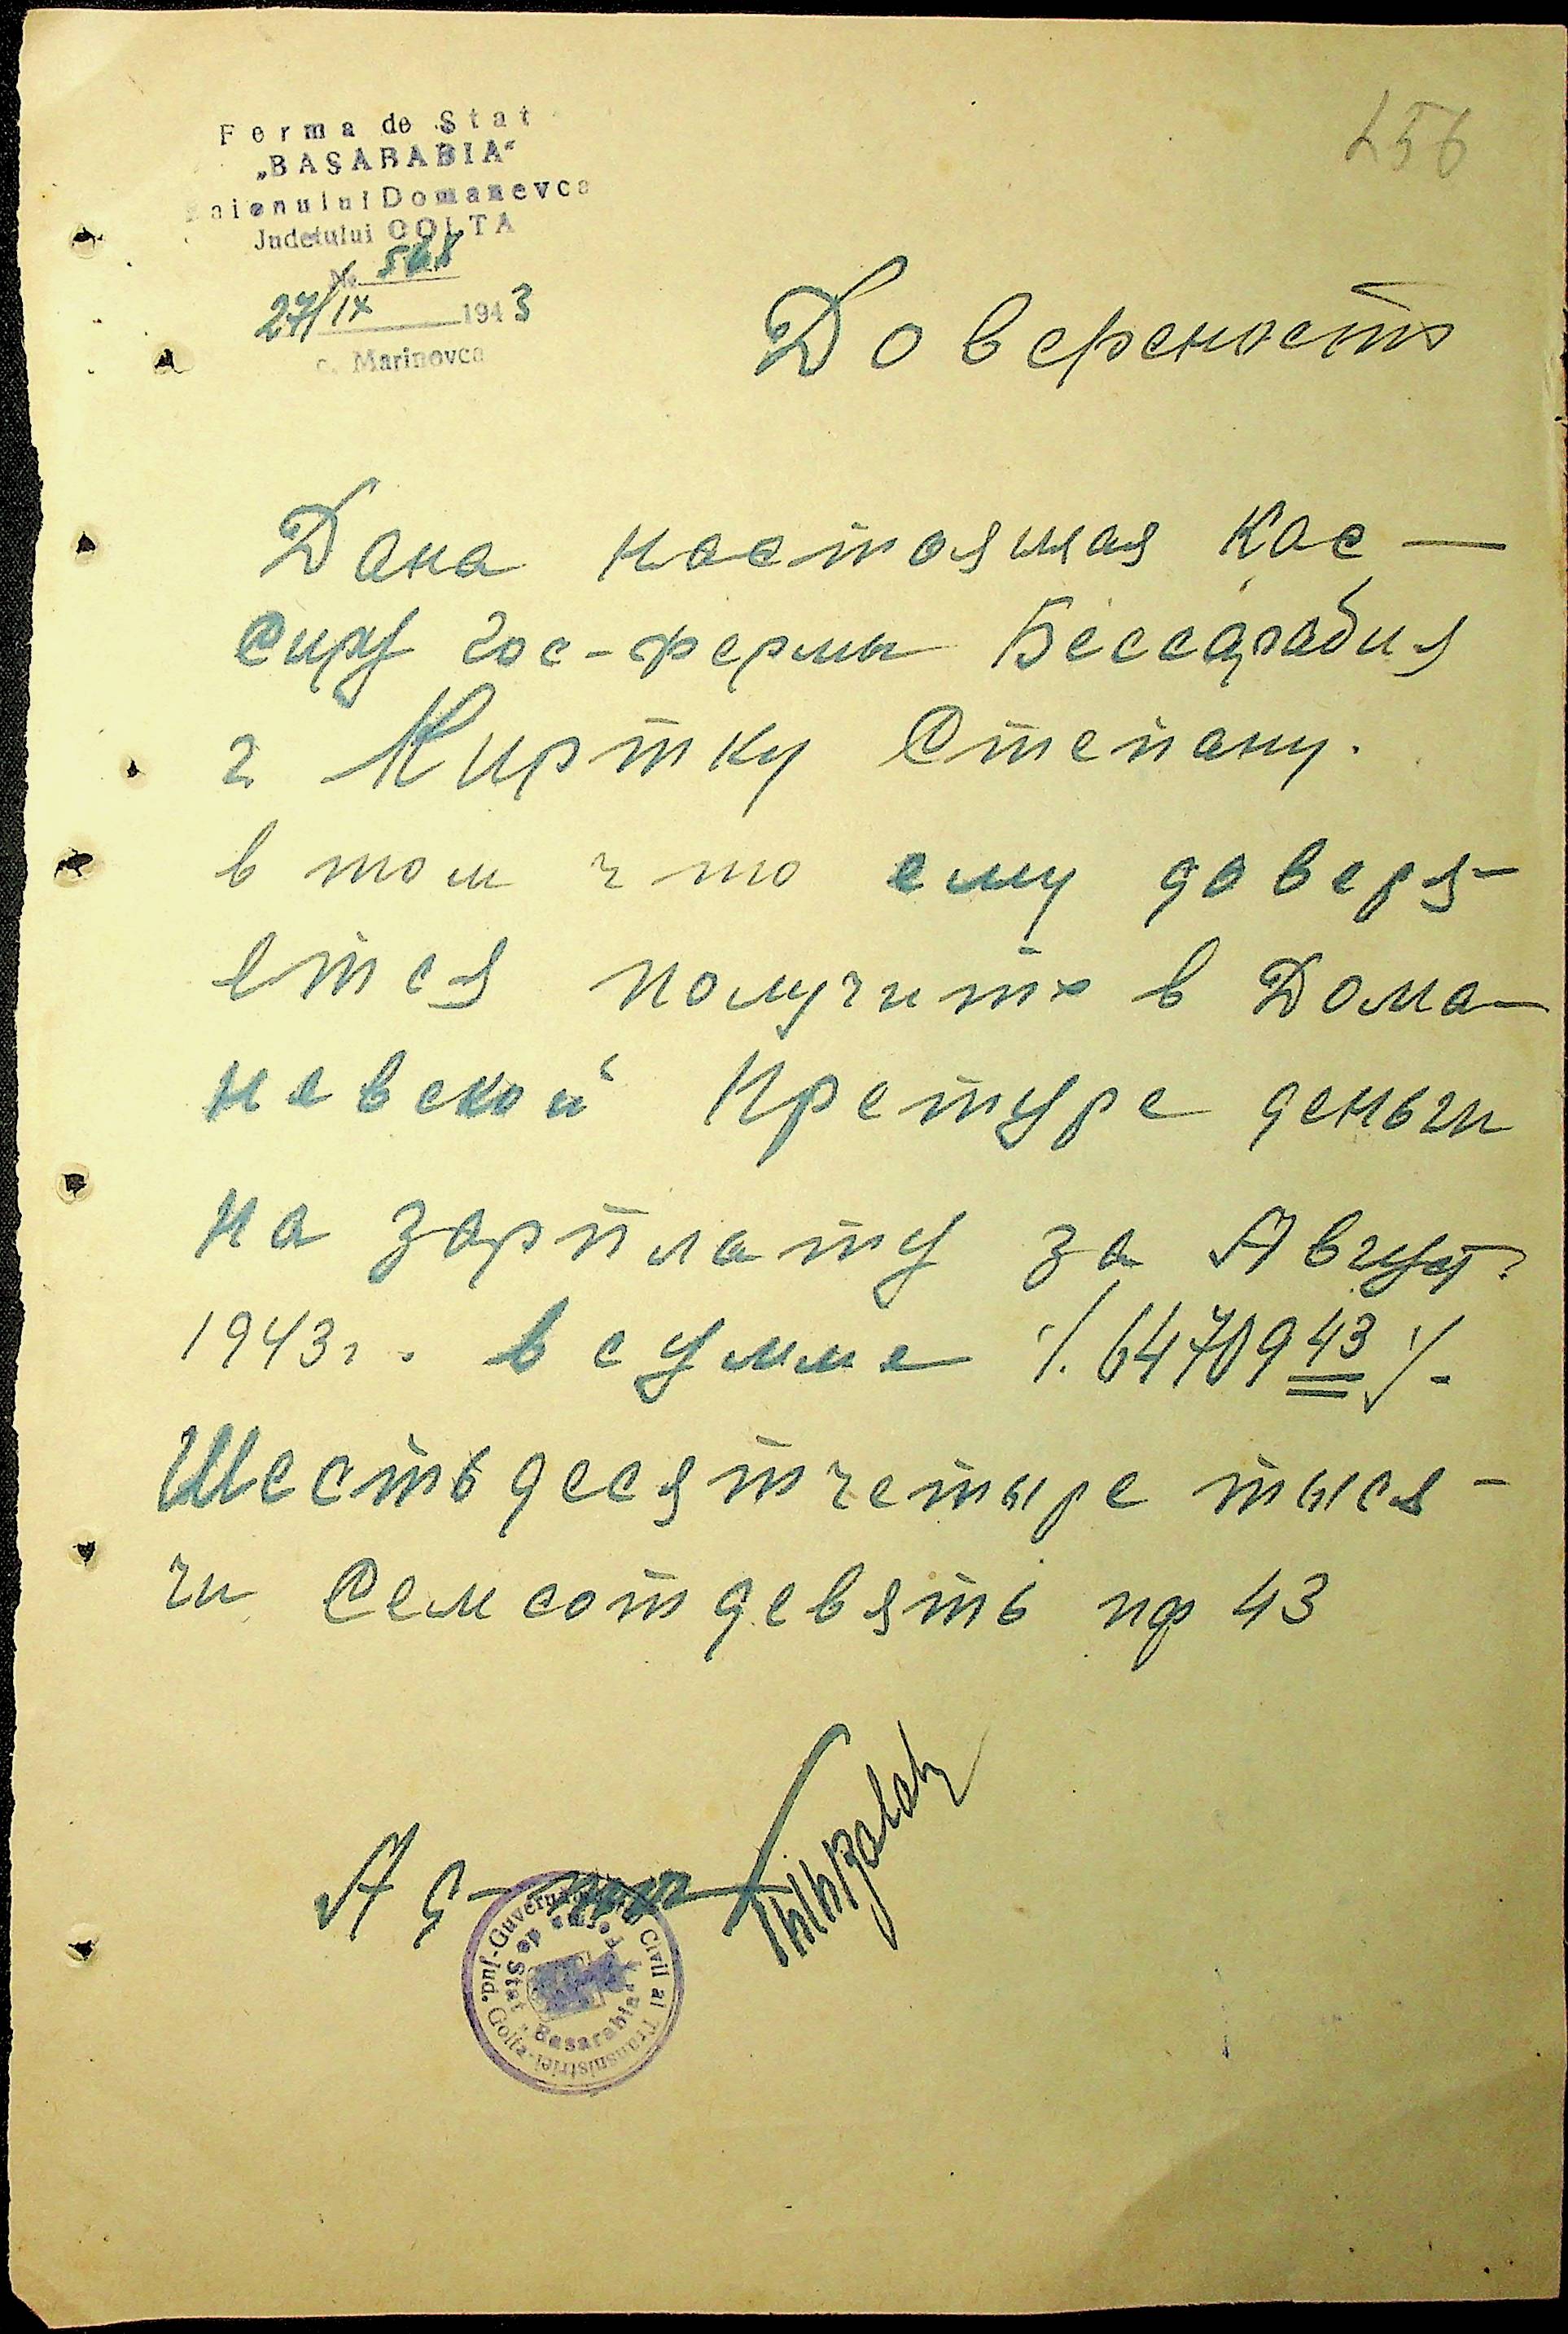 Ferma de Stat
„BASARABIA“
Raionului Domanevca
Judetului GOLTA
№ 568
27/IX 1943
c. Marinovca
256
Довереность
Дана настоящая кас—
сиру гос-фермы Бессарабия
г Киртку Степану.
в том что ему доверя—
ется получить в Дома—
невской Претуре деньги
на зарплату за Август
1943г. в сумме /. 64709 43 /.
Шестьдесятчетыре тыся—
чи Семсотдевять пф 43
Jud. Golta-Guvernamantul Civil al Transnistriei
Ferma de Stat „Basarabia“